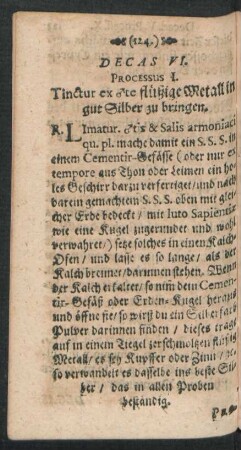 (124.)
DECAS VI.
PROCESSUS I.
Tinctur ex ♂te flüßige Metall in
gut Silber zu bringen.
R. LImatur. ♂tis & Salis armoniaci
qu. pl. mache damit ein S. S. S. in
einem Cementir-Gefässe (oder nur ex
tempore aus Thon oder Leimen ein ho-
les Geschirr darzu verfertiget/ und nach
darein gemachtem S. S. S. oben mit glei-
cher Erde bedeckt/ mit luto Sapientiæ
wie eine Kugel zugerundet und wohl
verwahret) setze solches in einen Kalch-
Ofen/ und lasse es so lange/ als der
Kalch brennet/ darinnen stehen. Wenn
der Kalch erkaltet/ so nim dein Cemen-
tir-Gefäß oder Erden-Kugel heraus
und öffne sie/ so wirst du ein Silberfarb
Pulver darinnen finden/ dieses trage
auf in einem Tiegel zerschmoltzen flüssig
Metall/ es sey Kupffer oder Zinn/ ꝛc.
so verwandelt es dasselbe ins beste Sil-
ber/ das in allen Proben
beständig.